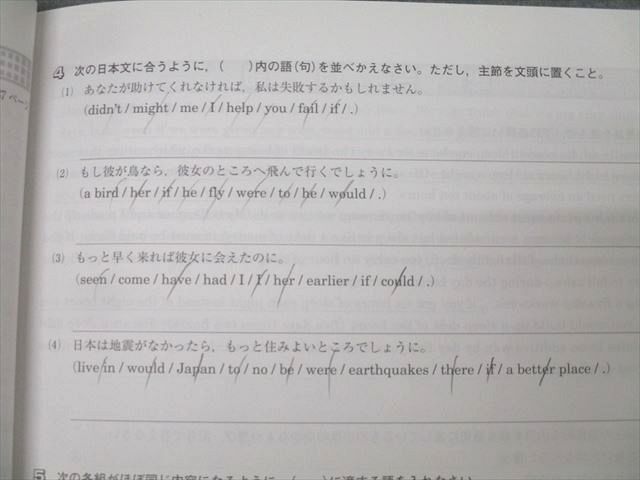 4 次の日本文に合うように，（　　）内の語(句)を並べかえなさい。ただし，主節を文頭に置くこと。
7ペー
(1) あなたが助けてくれなければ，私は失敗するかもしれません。
(didn't / might / me / I / help / you / fail / if / .)
(2) もし彼が鳥なら，彼女のところへ飛んで行くでしょうに。
(a bird / her / if / he / fly / were / to / he / would / .)
(3) もっと早く来れば彼女に会えたのに。
(seen / come / have / had / I / I / her / earlier / if / could / .)
(4) 日本は地震がなかったら，もっと住みよいところでしょうに。
(live in / would / Japan / to / no / be / were / earthquakes / there / if / a better place / .)
5 次の各組がほぼ同じ内容になるように，（　　）に適する語を入れなさい。